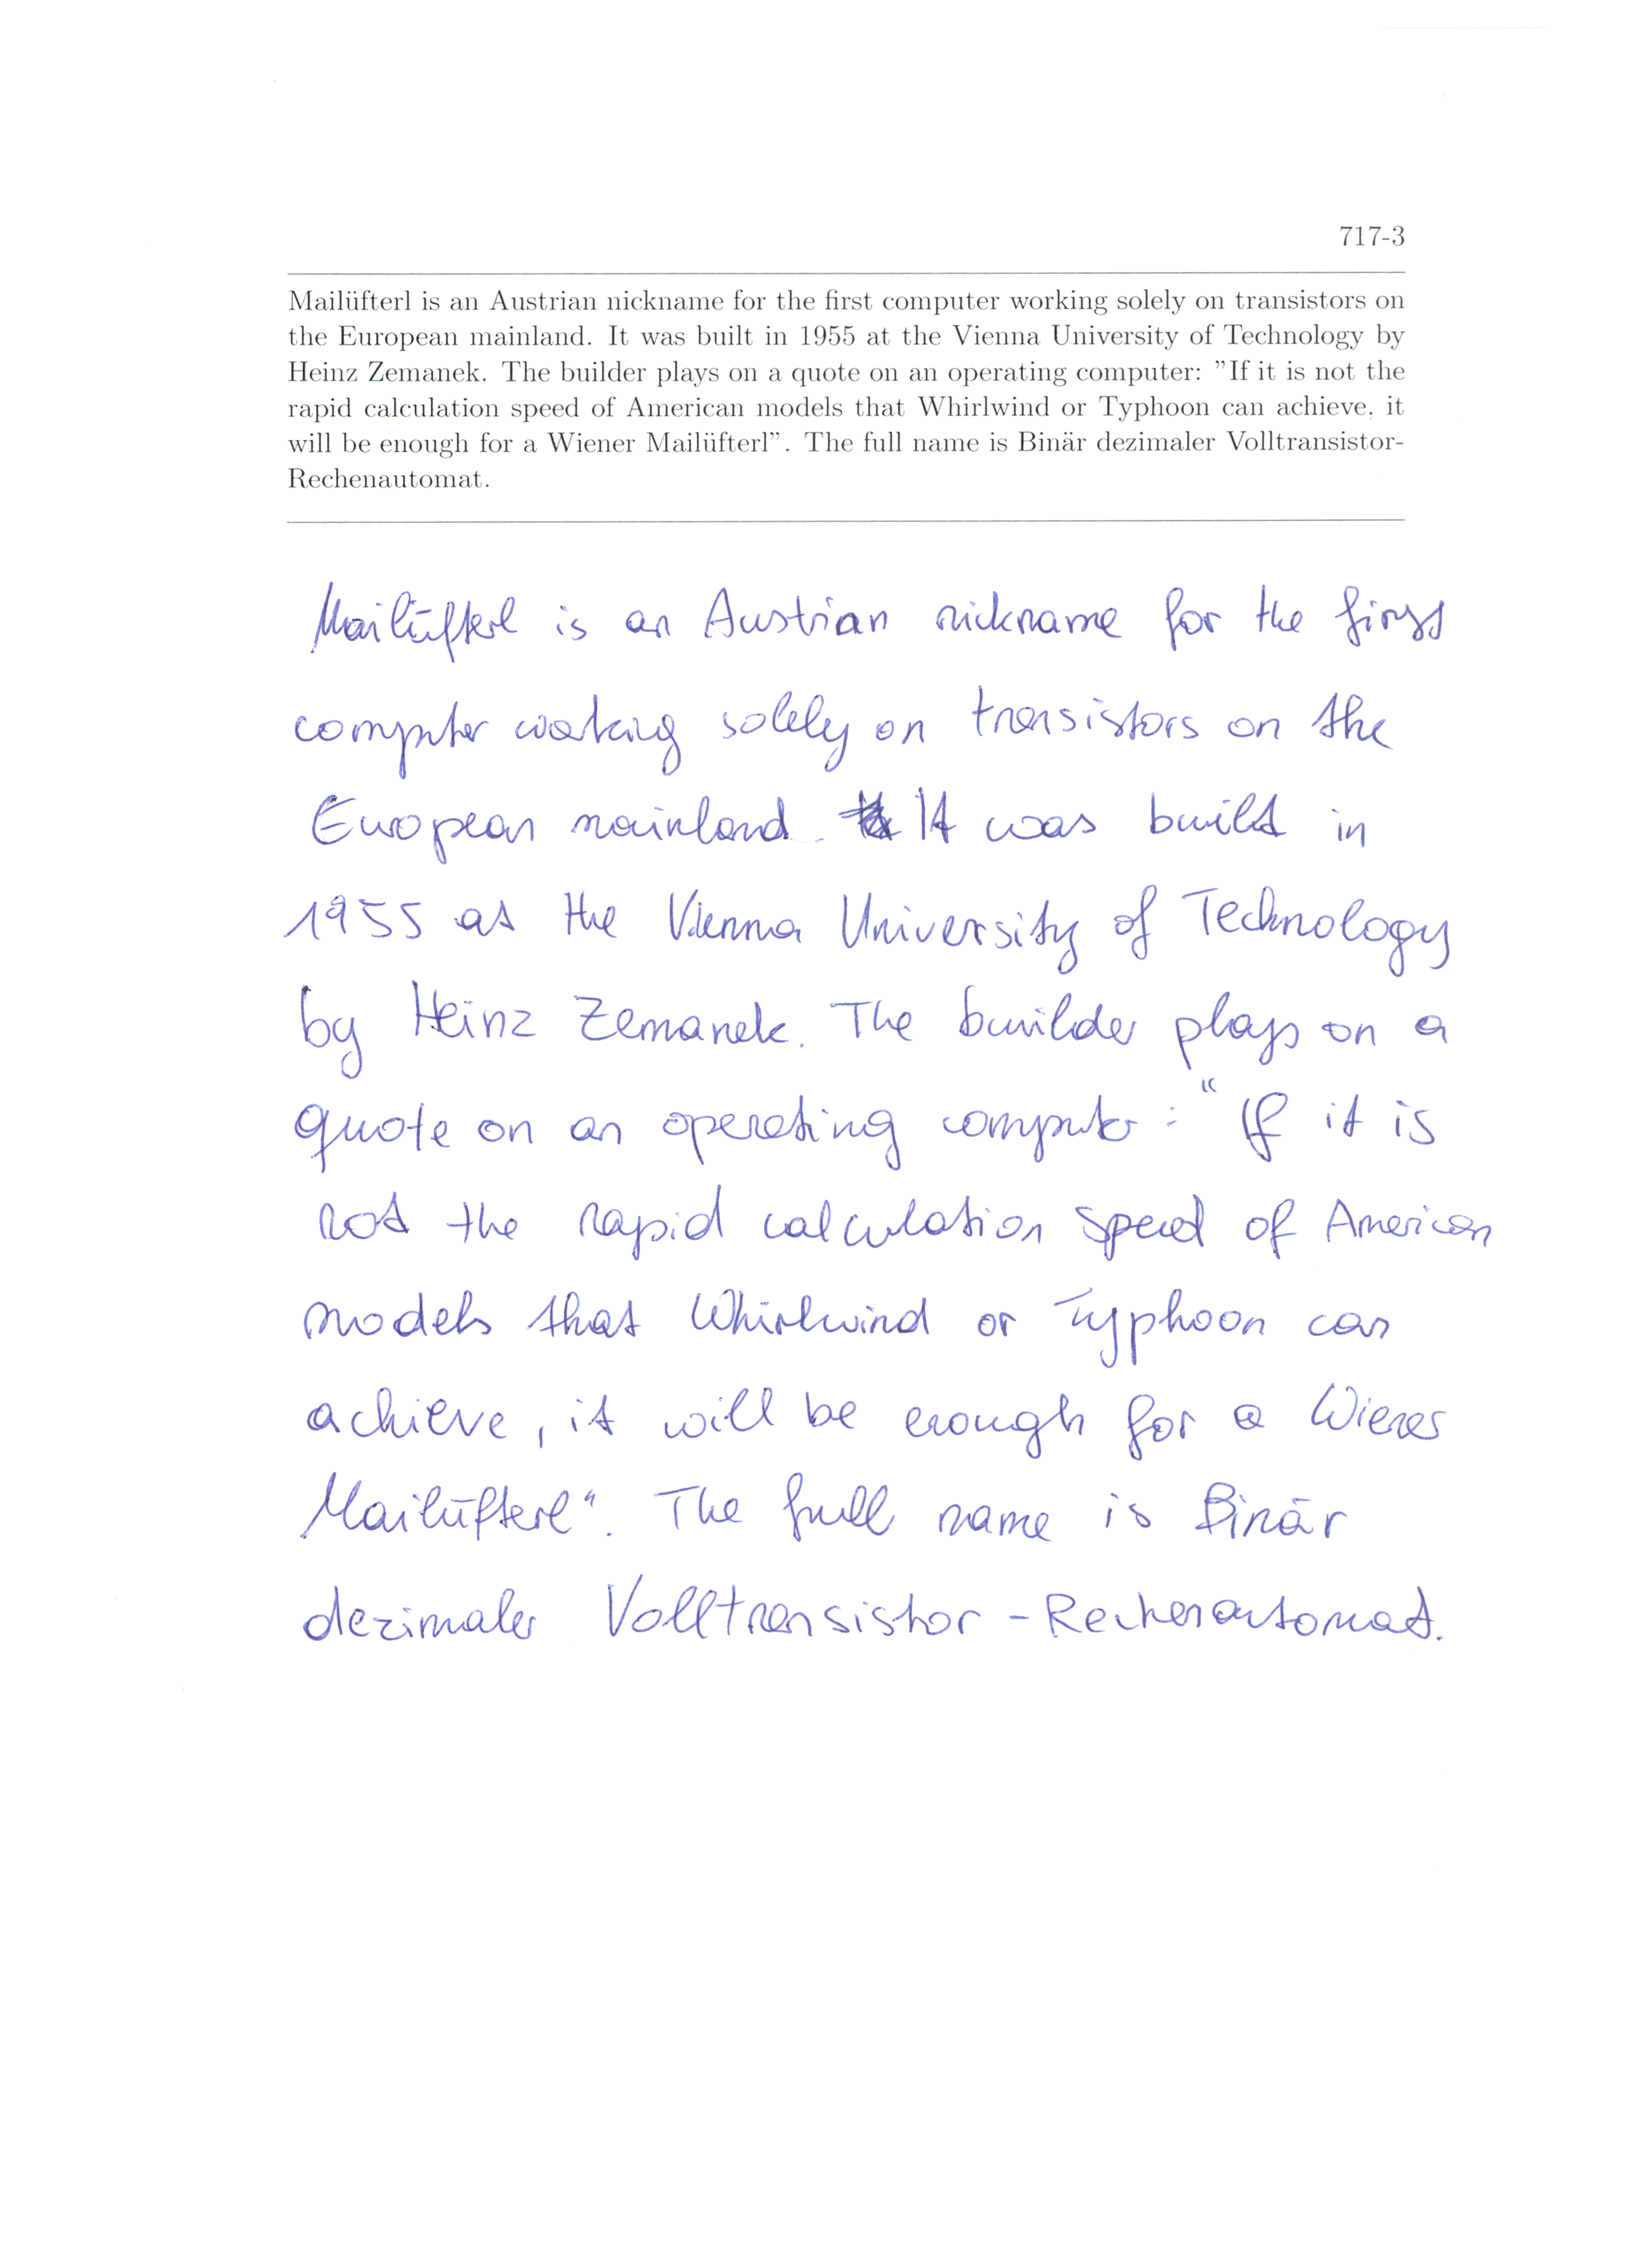 717-3
Mailüfterl is an Austrian nickname for the first computer working solely on transistors on
the European mainland. It was built in 1955 at the Vienna University of Technology by
Heinz Zemanek. The builder plays on a quote on an operating computer: "If it is not the
rapid calculation speed of American models that Whirlwind or Typhoon can achieve, it
will be enough for a Wiener Mailüfterl". The full name is Binär dezimaler Volltransistor-
Rechenautomat.
Mailüfterl is an Austrian nickname for the first
computer working solely on transistors on the
European mainland. It was build in
1955 at the Vienna University of Technology
by Heinz Zemanek. The builder plays on a
quote on an operating computer: "If it is
not the rapid calculation speed of American
models that Whirlwind or Typhoon can
achieve, it will be enough for a Wiener
Mailüfterl". The full name is Binär
dezimaler Volltransistor-Rechenautomat.